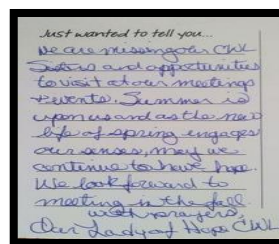 Just wanted to tell you...
we are missing our CWL
Sisters and opportunities
to visit at our meetings
+ events. Summer is
upon us and as the new
life of spring engages
our senses, may we
continue to have hope.
We look forward to
meeting in the fall
with prayers,
Our Lady of Hope CWL